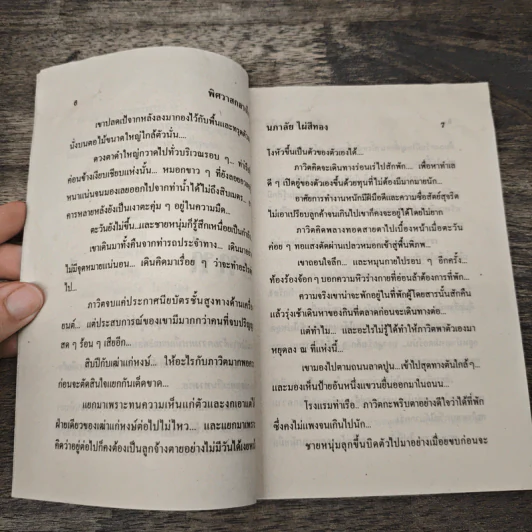 ๖
พิศวาสกลาง
เขาปลดเป้จากหลังลงมากองไว้กับพื้นและหยุดตัว
นั่งบนตอไม้ขนาดใหญ่ใกล้ตัวนั้น....
ดวงตาดำใหญ่กวาดไปทั่วบริเวณรอบ ๆ...
ค่อนข้างเงียบเชียบแห่งนั้น... หมอกขาว ๆ ที่ยังลอย
หนาแน่นจนมองเลยออกไปจากท่าน้ำได้ไม่ถึงสิบเมตร...
คารหลายหลังยังเป็นเงาตะคุ่ม ๆ อยู่ในความมืด...
ตะวันยังไม่ขึ้น...และชายหนุ่มก็รู้สึกเหนื่อยเป็นกำลัง
เขาเดินมาทั้งคืนจากท่ารถประจำทาง... เดินมา
ไม่มีจุดหมายแน่นอน... เดินคิดมาเรื่อย ๆ ว่าจะทำอะไร
ไป...
ภาวิตจบแค่ประกาศนียบัตรชั้นสูงทางด้าน
ยนต์... แต่ประสบการณ์ของเขามีมากกว่าคนที่จบปริญญา
สด ๆ ร้อน ๆ เสียอีก...
สิบปีกับเฒ่าแก่หงษ์... ให้อะไรกับภาวิตมาก
ก่อนจะตัดสินใจแยกกันเด็ดขาด...
แยกมาเพราะทนความเห็นแก่ตัวและงกเอาแต่ได้
ฝ่ายเดียวของเฒ่าแก่หงษ์ต่อไปไม่ไหว... และแยกมาเพราะ
คิดว่าอยู่ต่อไปก็คงต้องเป็นลูกจ้างตายอย่างไม่มีวันได้เงย
นภาลัย ไผ่สีทอง
๗
โงหัวขึ้นเป็นตัวของตัวเองได้...
ภาวิตคิดจะเดินทางร่อนเร่ไปสักพัก... เพื่อหาทำเล
ดี ๆ เปิดอู่ของตัวเองขึ้นด้วยทุนที่ไม่ต้องมีมากมายนัก...
อาศัยการทำงานหนักมีฝีมือดีและความซื่อสัตย์สุจริต
ไม่เอาเปรียบลูกค้าจนเกินไปเขาก็คงจะอยู่ได้โดยไม่ยาก
ภาวิตคิดพลางทอดสายตาไปเบื้องหน้าเมื่อตะวัน
ค่อย ๆ ทอแสงตัดผ่านเปลวหมอกเข้าสู่พื้นพิภพ...
เขาถอนใจลึก... และหมุนกายไปรอบ ๆ อีกครั้ง
ท้องร้องจ้อก ๆ บอกความหิวร่างกายที่อ่อนล้าต้องการที่พัก...
ความจริงเขาน่าจะพักอยู่ในที่พักผู้โดยสารนั้นสักคืน
แล้วรุ่งเช้าเดินหาของกินที่ตลาดก่อนจะเดินทางต่อ...
แต่ทำไม... และอะไรไม่รู้ได้ทำให้ภาวิตพาตัวเองมา
หยุดลง ณ ที่แห่งนี้...
เขามองไปตามถนนลาดปูน...เข้าไปสุดทางตันใกล้ๆ...
และมองเห็นป้ายอันหนึ่งแขวนยื่นออกมาในถนน...
โรงแรมท่าเรือ.. ภาวิตกะพริบตาอย่างดีใจว่าได้ที่พัก
ซึ่งคงไม่แพงจนเกินไปนัก...
ชายหนุ่มลุกขึ้นบิดตัวไปมาอย่างเมื่อยขบก่อนจะ